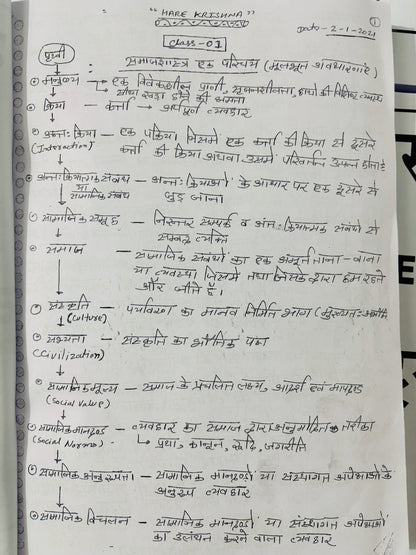 "HARE KRISHNA"
1
Date - 2-1-2021
Class-01
पृथ्वी
समाजशास्त्र एक परिचय (मूलभूत अवधारणाएं)
मनुष्य → एक विवेकशील प्राणी, सृजनशीलता, हाथों की विशिष्ट
सीधा खड़ा होने की क्षमता
क्रिया - कर्ता → अर्थपूर्ण व्यवहार
अन्तः क्रिया - एक प्रक्रिया जिसमें एक कर्ता की क्रिया से दूसरे
(Interaction) कर्ता की क्रिया अथवा उसमें परिवर्तन उत्पन्न होता है
अन्तःक्रियात्मक संबंध - अन्तः क्रियाओं के आधार पर एक दूसरे से
या
सामाजिक संबंध जुड़ जाना
सामाजिक समूह - निरन्तर सम्पर्क व अंतःक्रियात्मक संबंधो से
सम्बद्ध व्यक्ति
समाज - सामाजिक संबंधो का एक अमूर्त ताना-बाना
या व्यवस्था जिसमें तथा जिसके द्वारा हम रहते
और जीते हैं।
संस्कृति - पर्यावरण का मानव निर्मित भाग (मुख्यतः
(Culture)
सभ्यता - संस्कृति का भौतिक पक्ष
(Civilization)
सामाजिक मूल्य - समाज के प्रचलित लक्ष्य, आदर्श एवं मापदण्ड
(Social Value)
सामाजिक मानदण्ड - व्यवहार का समाज द्वारा अनुमोदित तरीका
(Social Norms) → प्रथा, कानून, रूढ़ि, जनरीति
सामाजिक अनुरूपता - सामाजिक मानदण्डों या संस्थागत अपेक्षाओं के
अनुरूप व्यवहार
सामाजिक विचलन - सामाजिक मानदण्डों या संस्थागत अपेक्षाओं
का उलंघन करने वाला व्यवहार